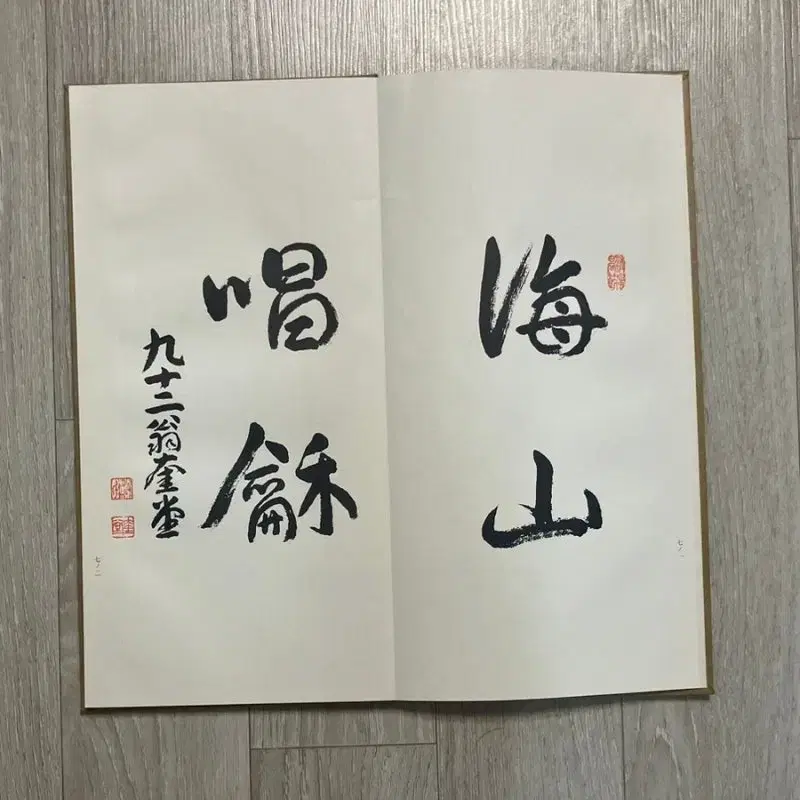 海山
唱龢
九十二翁奎堂
七ノ一
七ノ二